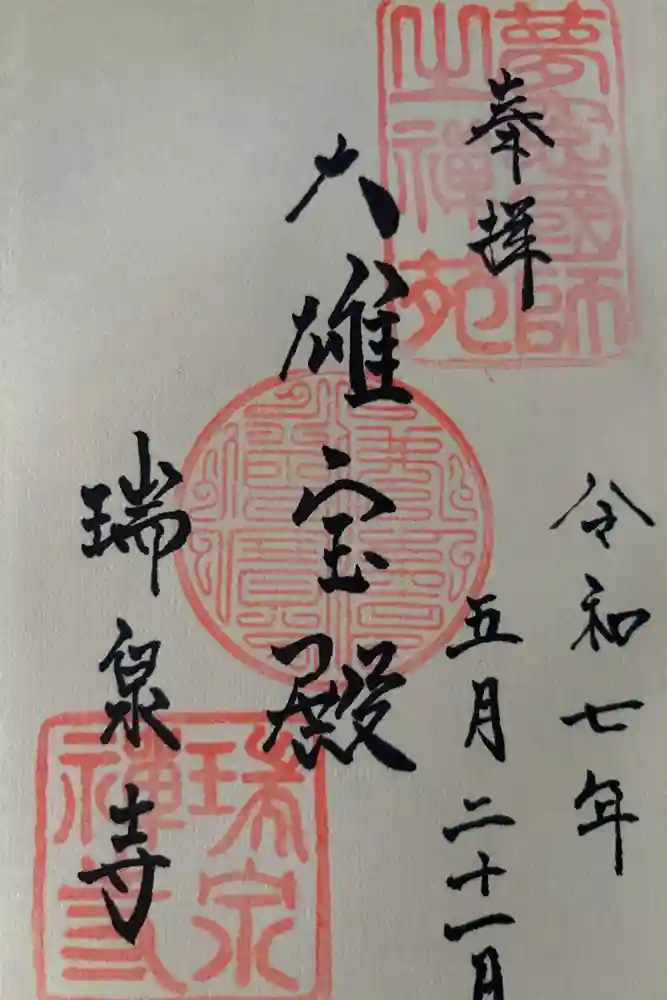 夢窓國師
之禪苑
令和七年
五月二十一日
奉拝
大雄宝殿
瑞泉寺
瑞泉
禪寺